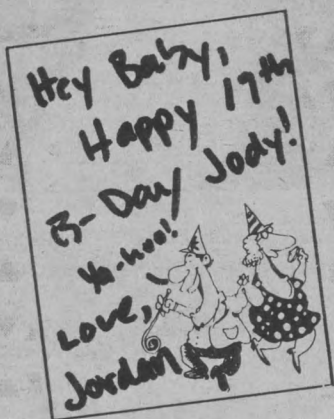 Hey Baby,
Happy 19th
B-Day Jody!
Ya-hoo!
Love,
Jordan